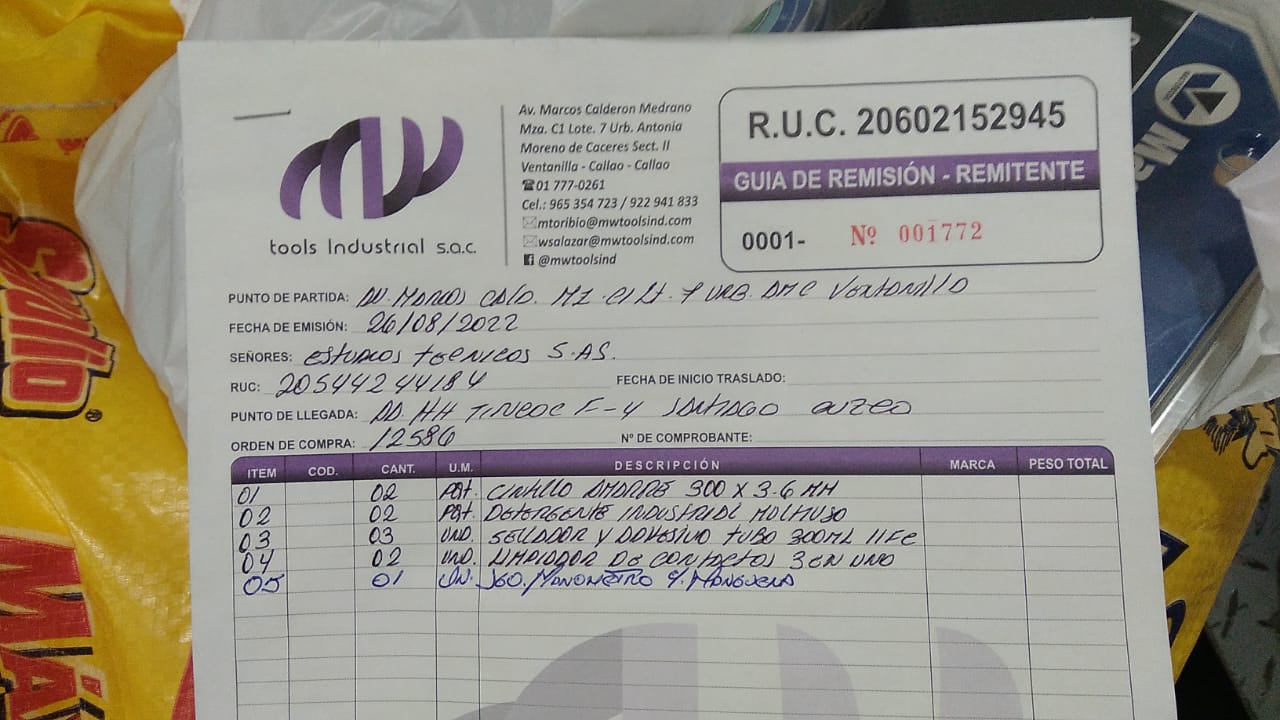 tools Industrial s.a.c.
Av. Marcos Calderon Medrano
Mza. C1 Lote. 7 Urb. Antonia
Moreno de Caceres Sect. II
Ventanilla - Callao - Callao
☎01 777-0261
Cel.: 965 354 723 / 922 941 833
✉mtoribio@mwtoolsind.com
✉wsalazar@mwtoolsind.com
@mwtoolsind
R.U.C. 20602152945
GUIA DE REMISIÓN - REMITENTE
0001- Nº 001772
PUNTO DE PARTIDA: AV. MARCOS CALD. MZ. C1 LT. 7 URB. AMC VENTANILLA
FECHA DE EMISIÓN: 26/08/2022
SEÑORES: ESTUDIOS TECNICOS S.AS.
RUC: 20544244184 FECHA DE INICIO TRASLADO:
PUNTO DE LLEGADA: HH F-4 SANTIAGO
ORDEN DE COMPRA: 12586 Nº DE COMPROBANTE:
ITEM COD. CANT. U.M. DESCRIPCIÓN MARCA PESO TOTAL
01 02 PQT. CINTILLO AMARRE 300 X 3.6 MM
02 02 PQT. DETERGENTE INDUSTRIAL MULTIUSO
03 03 UND. SELLADOR Y ADHESIVO TUBO 300ML 11FC
04 02 UND. LIMPIADOR DE CONTACTOS 3 EN UNO
05 01 UN. JGO. MANOMETRO Y. MANGUERA
Salio
MÁ
Ma